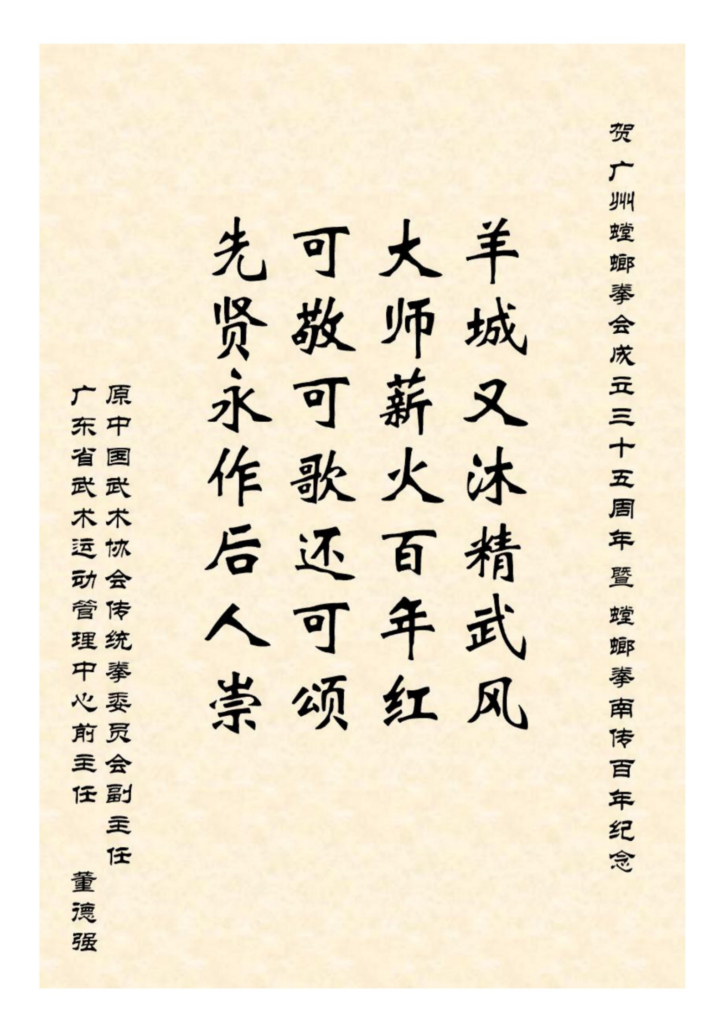 贺 广州螳螂拳会成立三十五周年 暨 螳螂拳南传百年纪念
羊城又沐精武风
大师薪火百年红
可敬可歌还可颂
先贤永作后人崇
原中国武术协会传统拳委员会副主任
广东省武术运动管理中心前主任 董德强